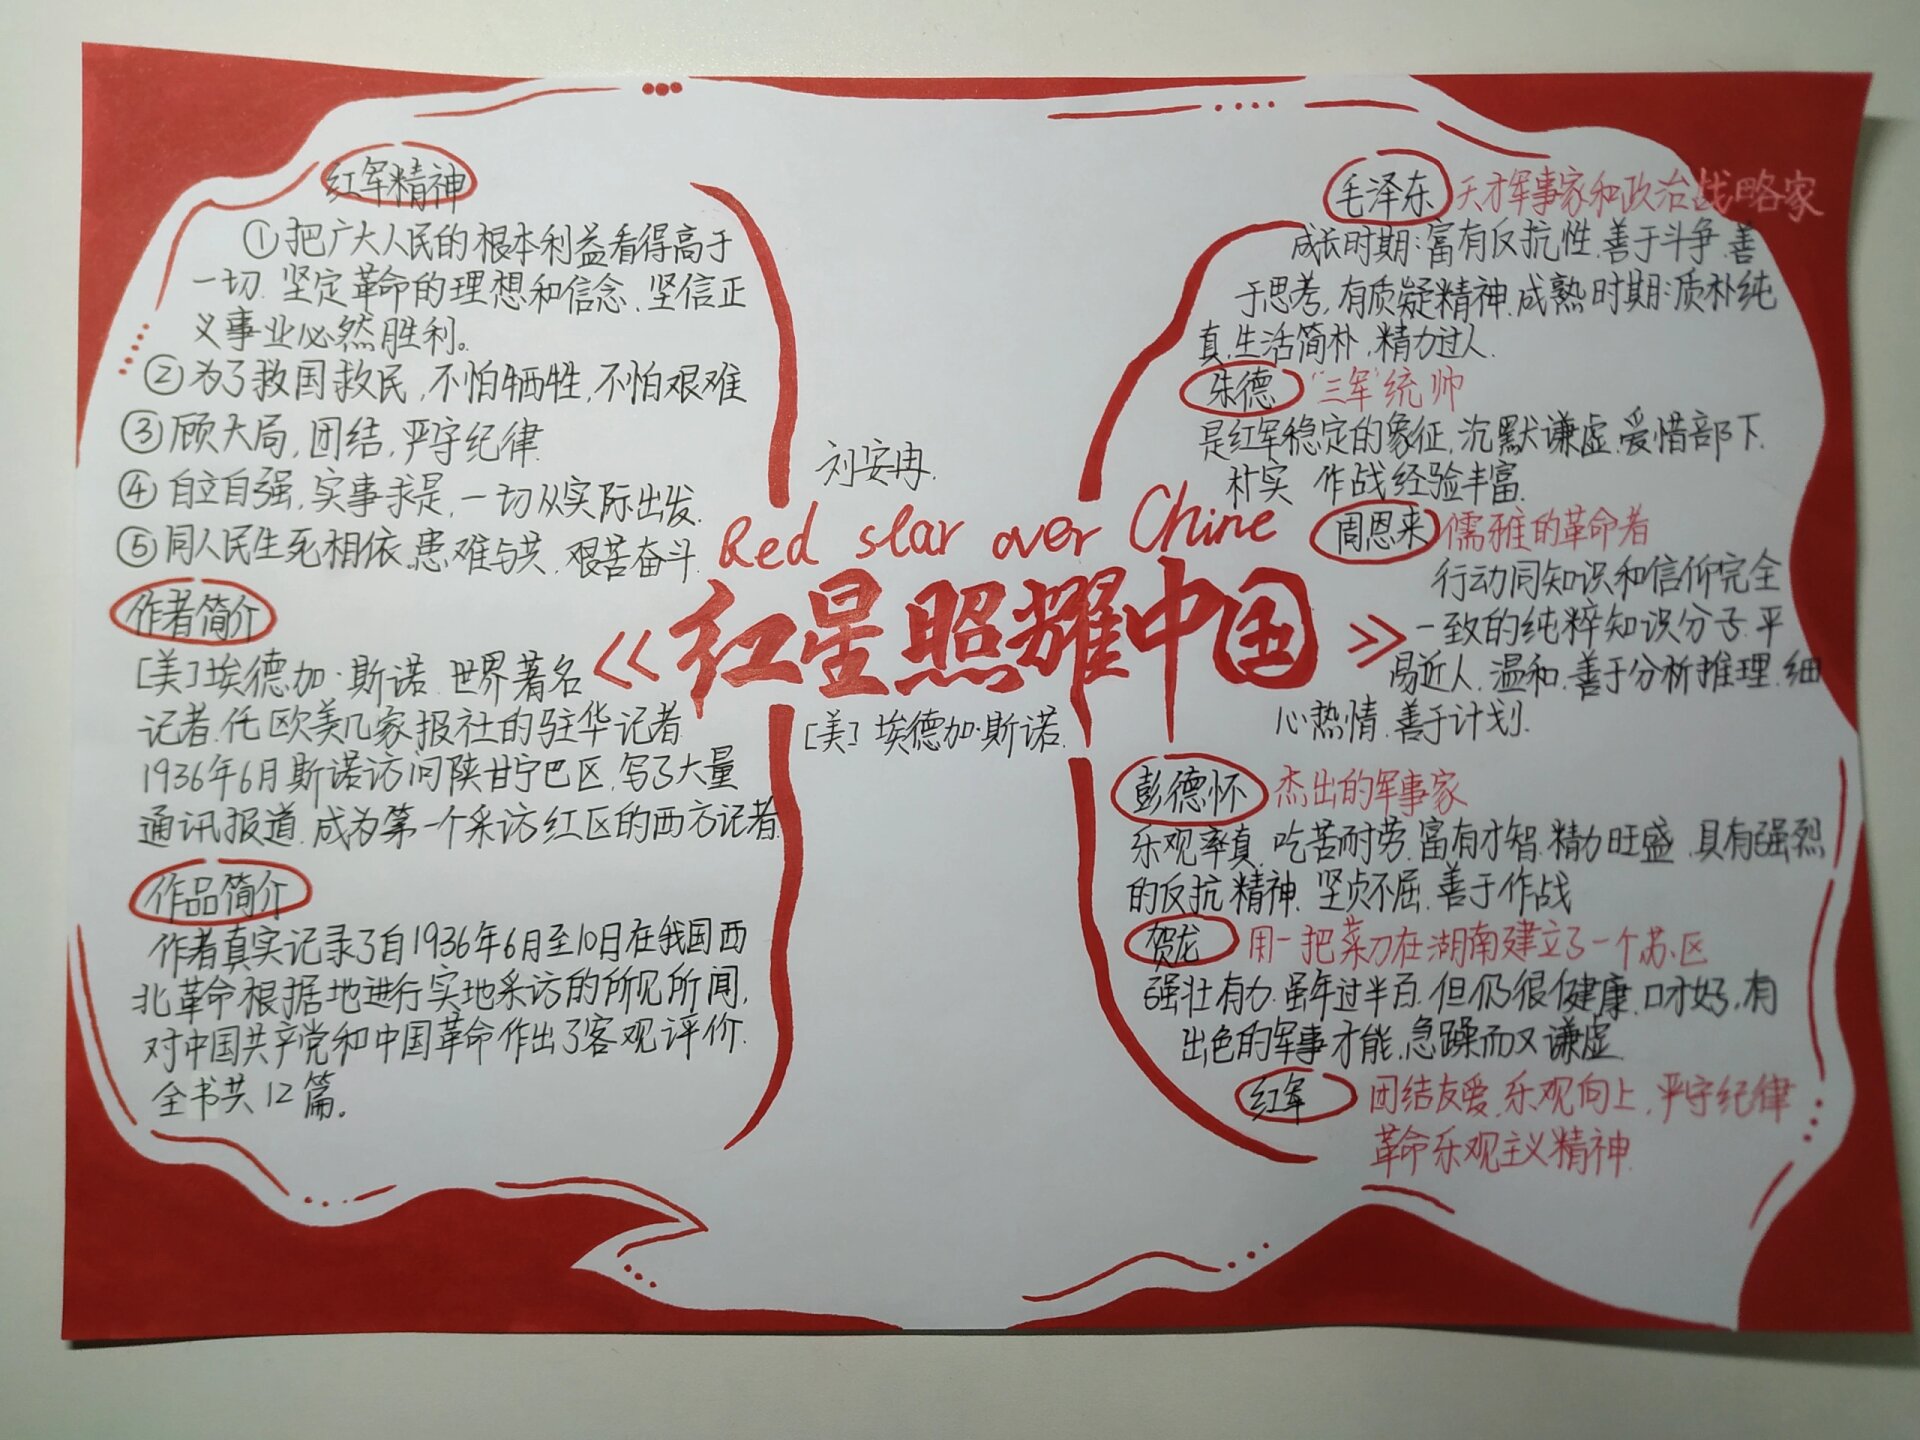 红军精神
①把广大人民的根本利益看得高于
一切.坚定革命的理想和信念、坚信正
义事业必然胜利。
②为了救国救民,不怕牺牲,不怕艰难
③顾大局,团结,严守纪律
④自立自强,实事求是,一切从实际出发.
⑤同人民生死相依.患难与共.艰苦奋斗.
作者简介
[美]埃德加·斯诺.世界著名
记者.任欧美几家报社的驻华记者
1936年6月斯诺访问陕甘宁巴区.写了大量
通讯报道.成为第一个采访红区的西方记者.
作品简介
作者真实记录了自1936年6月至10日在我国西
北革命根据地进行实地采访的所见所闻,
对中国共产党和中国革命作出了客观评价.
全书共12篇。
刘安冉.
Red star over Chine
《红星照耀中国》
[美]埃德加·斯诺.
毛泽东 天才军事家和政治战略家
成长时期:富有反抗性.善于斗争.善
于思考,有质疑精神.成熟时期:质朴纯
真.生活简朴,精力过人.
朱德 “三军”统帅
是红军稳定的象征,沉默谦虚.爱惜部下.
朴实 作战经验丰富.
周恩来 儒雅的革命者
行动同知识和信仰完全
一致的纯粹知识分子.平
易近人.温和.善于分析推理.细
心热情.善于计划.
彭德怀 杰出的军事家
乐观率真.吃苦耐劳.富有才智.精力旺盛.具有强烈
的反抗精神.坚贞不屈.善于作战
贺龙 用一把菜刀在湖南建立了一个苏区
强壮有力.虽年过半百.但仍很健康.口才好,有
出色的军事才能.急躁而又谦虚
红军 团结友爱.乐观向上,严守纪律
革命乐观主义精神.